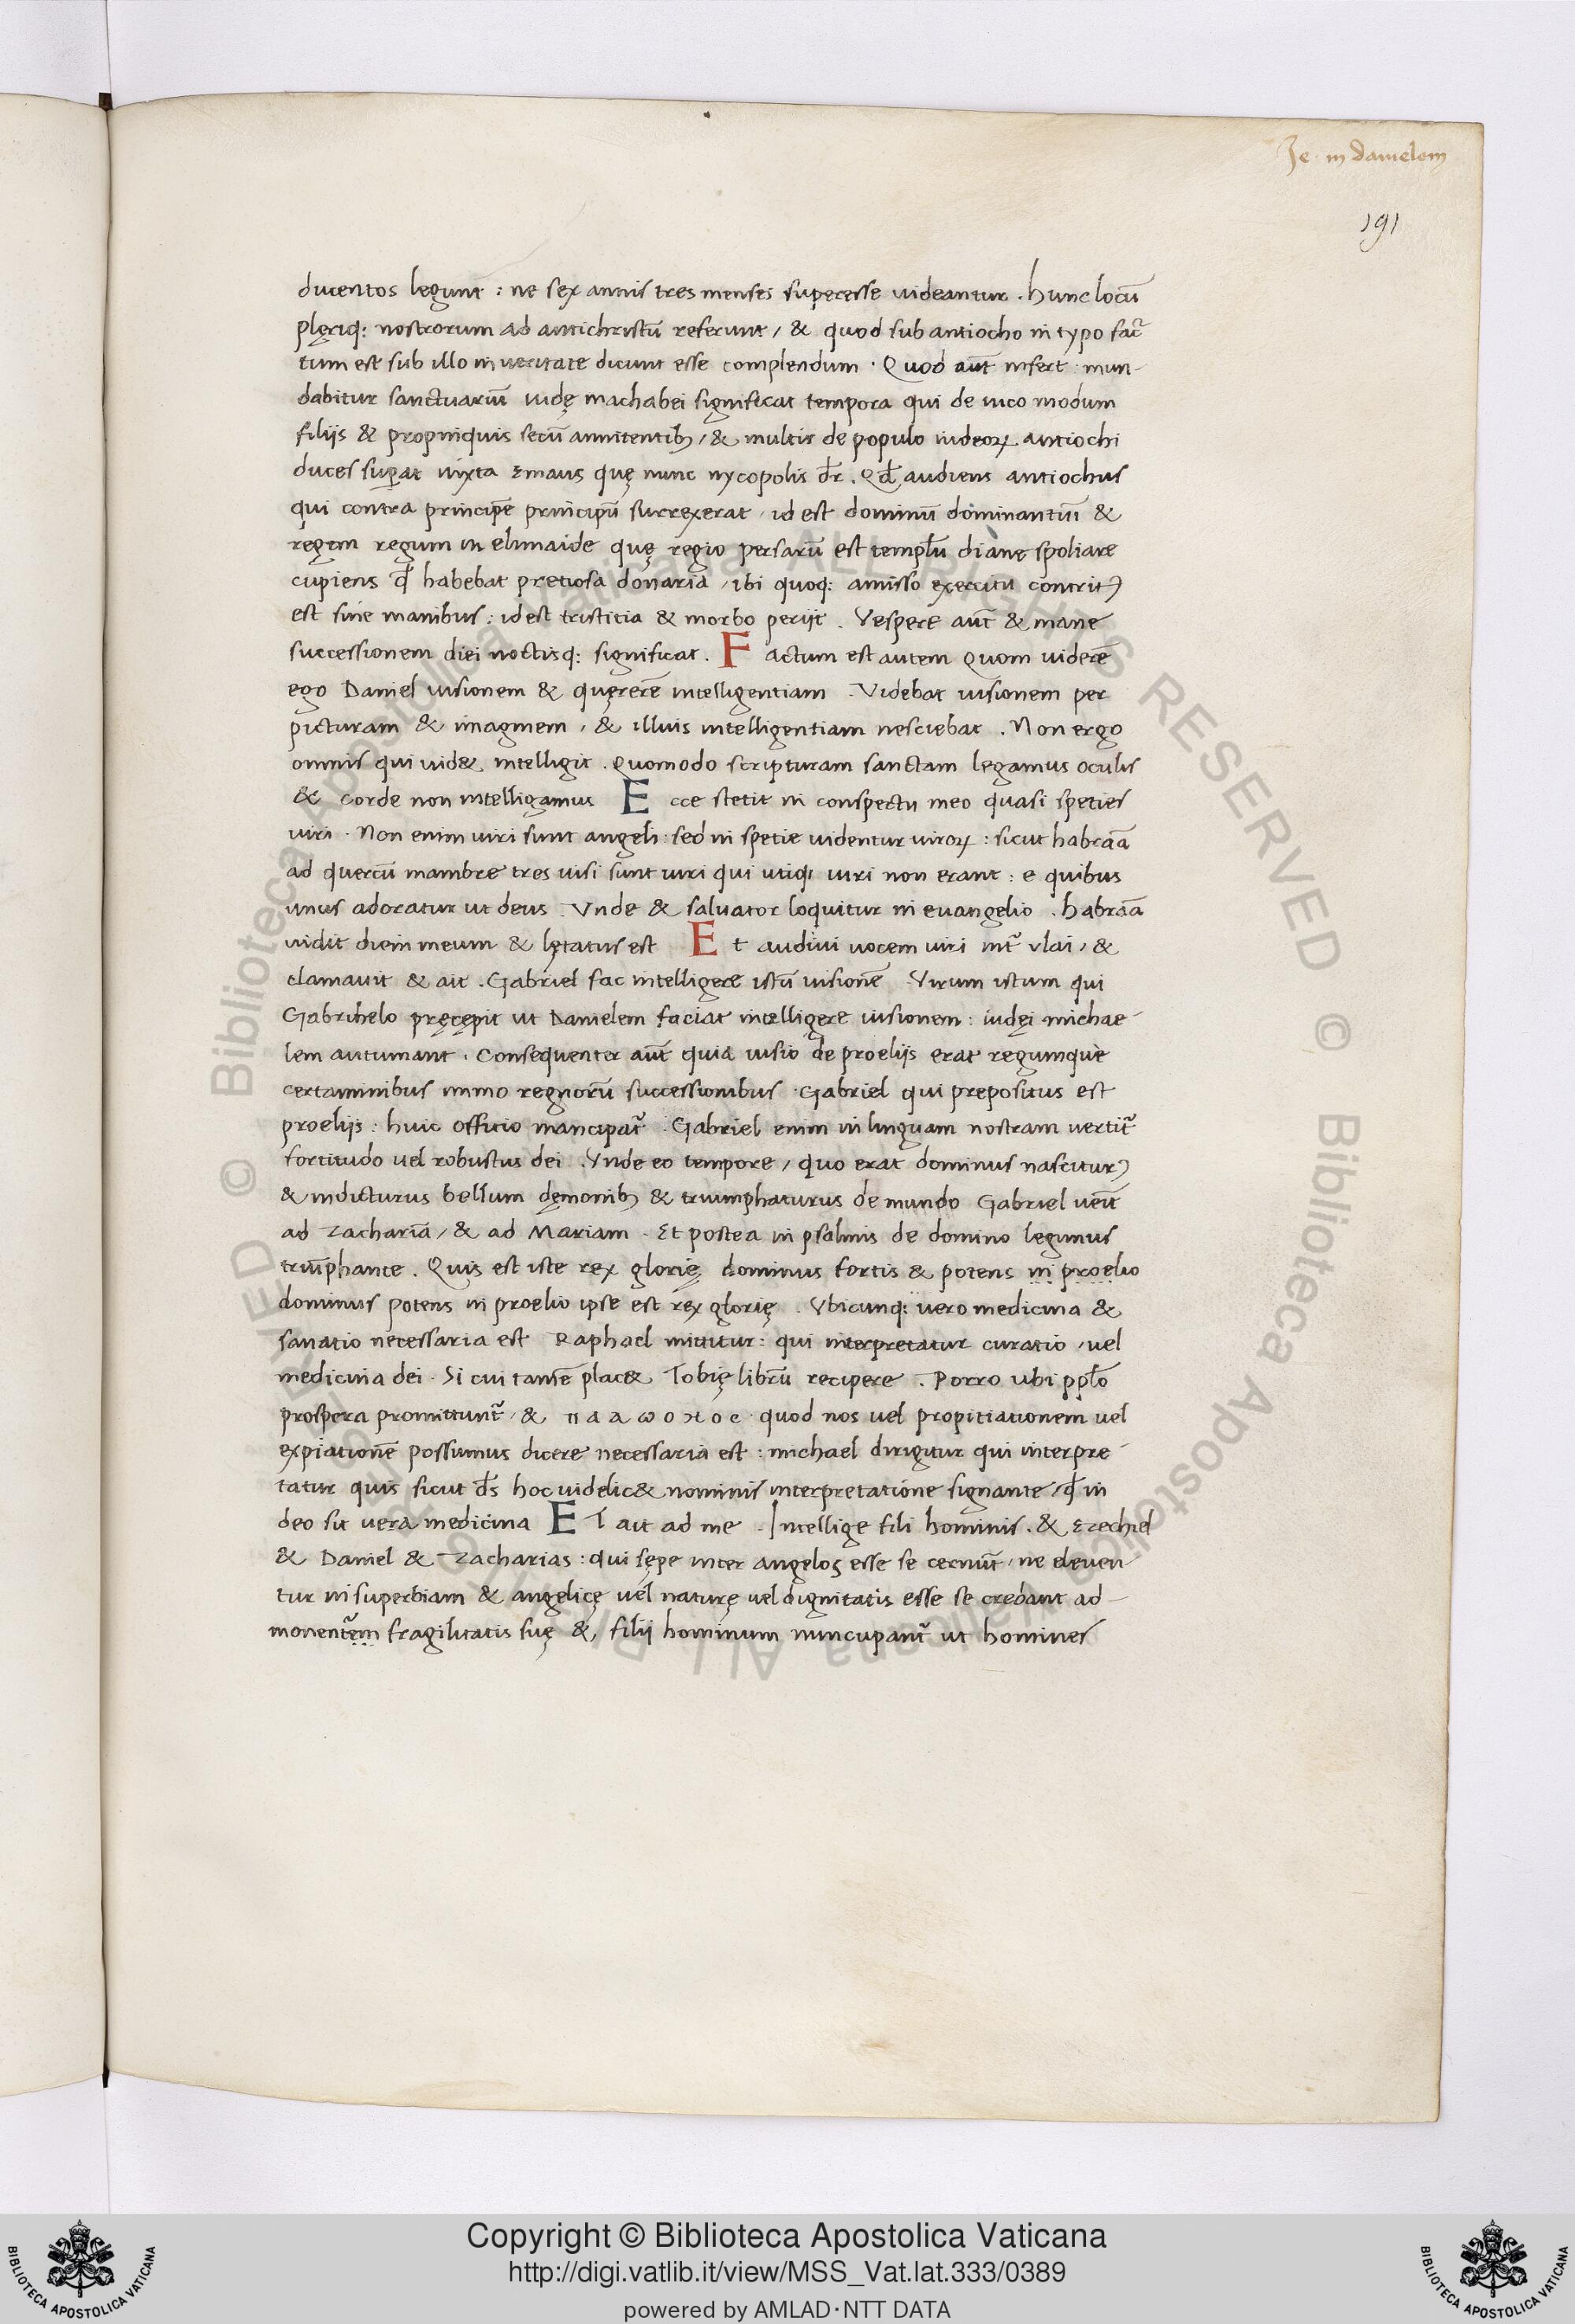 Je in danielem
191
ducentos legunt : ne sex annis tres menses superesse uideantur . hunc locū
plęriq: nostrorum ad antichristū referunt / & quod sub antiocho in typo fac
tum est sub illo in ueritate dicunt esse complendum . Quod aūt infert mun-
dabitur sanctuariū iudę machabei significat tempora qui de uico modum
filijs & propinquis secū annitentibꝫ / & multis de populo iudeoꝝ antiochi
duces suꝑat iuxta Emaus quę nunc nycopolis dr̄ . Qd̄ audiens antiochus
qui contra principē principū surrexerat / id est dominū dominantiū &
regem regum in elimaide quę regio persarū est templū dianę spoliare
cupiens qd̄ habebat pretiosa donaria / ibi quoq: amisso exercitu contritꝰ
est sine manibus : id est tristitia & morbo perijt . Vespere aūt & mane
successionem diei noctisq: significat . Factum est autem Quom uiderē
ego Daniel uisionem & quęrerē intelligentiam . Videbat uisionem per
picturam & imaginem / & illius intelligentiam nesciebat . Non ergo
omnis qui uid& intelligit . Quomodo scripturam sanctam legamus oculis
& corde non intelligamus Ecce stetit in conspectu meo quasi speties
uiri . Non enim uiri sunt angeli : sed in spetie uidentur uiroꝝ : sicut habraā
ad quercū mambre tres uisi sunt uiri qui utiq: uiri non erant : e quibus
unus adoratur ut deus . Vnde & saluator loquitur in euangelio . habraā
uidit diem meum & lętatus est Et audiui uocem uiri int̄ vlai / &
clamauit & ait . Gabriel fac intelligere istū uisionē . Virum istum qui
Gabrihelo pręcępit ut Danielem faciat intelligere uisionem : iudęi michae-
lem autumant . Consequenter aūt quia uisio de proelijs erat regumque
certaminibus immo regnorū successionibus . Gabriel qui prepositus est
proelijs : huic officio mancipat̄ . Gabriel enim in linguam nostram uertit̄
fortitudo uel robustus dei . Vnde eo tempore / quo erat dominus nasciturꝰ
& indicturus bellum dęmonibꝫ & triumphaturus de mundo Gabriel uēit
ad Zachariā / & ad Mariam . Et postea in psalmis de domino legimus
triūphante . Quis est iste rex glorię dominus fortis & potens in proelio
dominus potens in proelio ipse est rex glorię . Vbicunq: uero medicina &
sanatio necessaria est Raphael mittitur : qui interpretatur curatio / uel
medicina dei . Si cui tamē plac& Tobię librū recipere . Porro ubi ppl̄o
prospera promittunt̄ / & π α α ω ο κ ο c quod nos uel propitiationem uel
expiationē possumus dicere necessaria est : michael dirigitur qui interpre-
tatur quis sicut ds̄ hoc uidelic& nominis interpretatione signante / qd̄ in
deo sit uera medicina ET ait ad me . Intellige fili hominis . & Ezechiel
& Daniel & Zacharias : qui sępe inter angelos esse se cernūt / ne eleuen-
tur in superbiam & angelicę uel naturę uel dignitatis esse se credant ad-
monentem fragilitatis suę & filij hominum nuncupant̄ ut homines
Copyright © Biblioteca Apostolica Vaticana
http://digi.vatlib.it/view/MSS_Vat.lat.333/0389
powered by AMLAD·NTT DATA